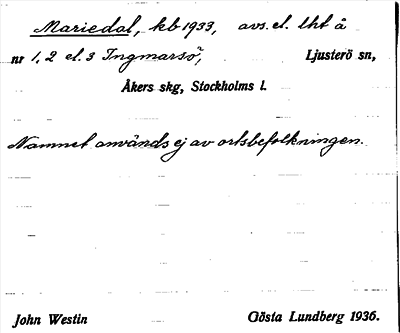 Mariedal, kb 1933, avs. el. lht å
nr 1, 2 el. 3 Ingmarsö, Ljusterö sn,
Åkers skg, Stockholms l.
Namnet används ej av ortsbefolkningen.
John Westin Gösta Lundberg 1936.